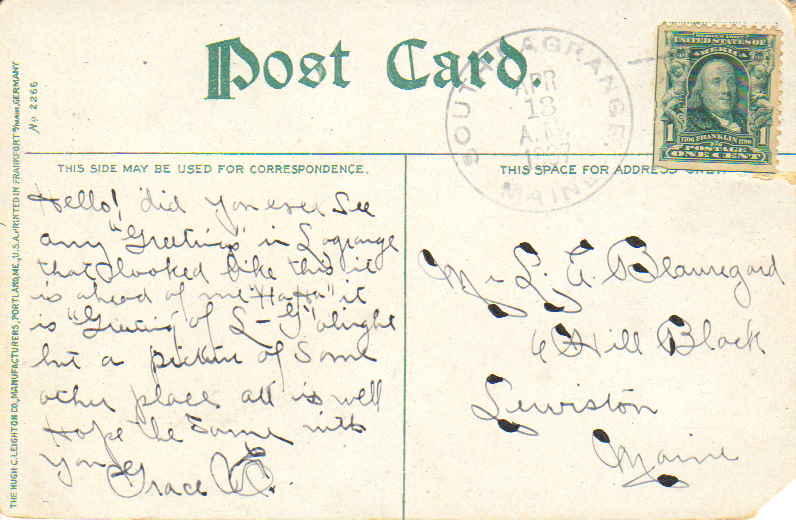 Post Card.
SOUTH LAGRANGE
APR
13
A.M.
1907
MAINE
UNITED STATES OF
AMERICA
1 1706 FRANKLIN 1790 1
POSTAGE
ONE CENT
THIS SIDE MAY BE USED FOR CORRESPONDENCE.
THIS SPACE FOR ADDRESS ONLY.
Hello! did you ever See
any "Greetings" in Lagrange
that looked like this it
is ahead of me "Ha Ha" it
is "Greeting of L-G" alright
but a picture of Some
other place all is well
Hope the Same with
you Grace E.
Mr L. A. Beauregard
6 Hill Block
Lewiston
Maine
No 2266
THE HUGH C. LEIGHTON CO., MANUFACTURERS, PORTLAND, ME., U.S.A. PRINTED IN FRANKFORT o/MAIN, GERMANY